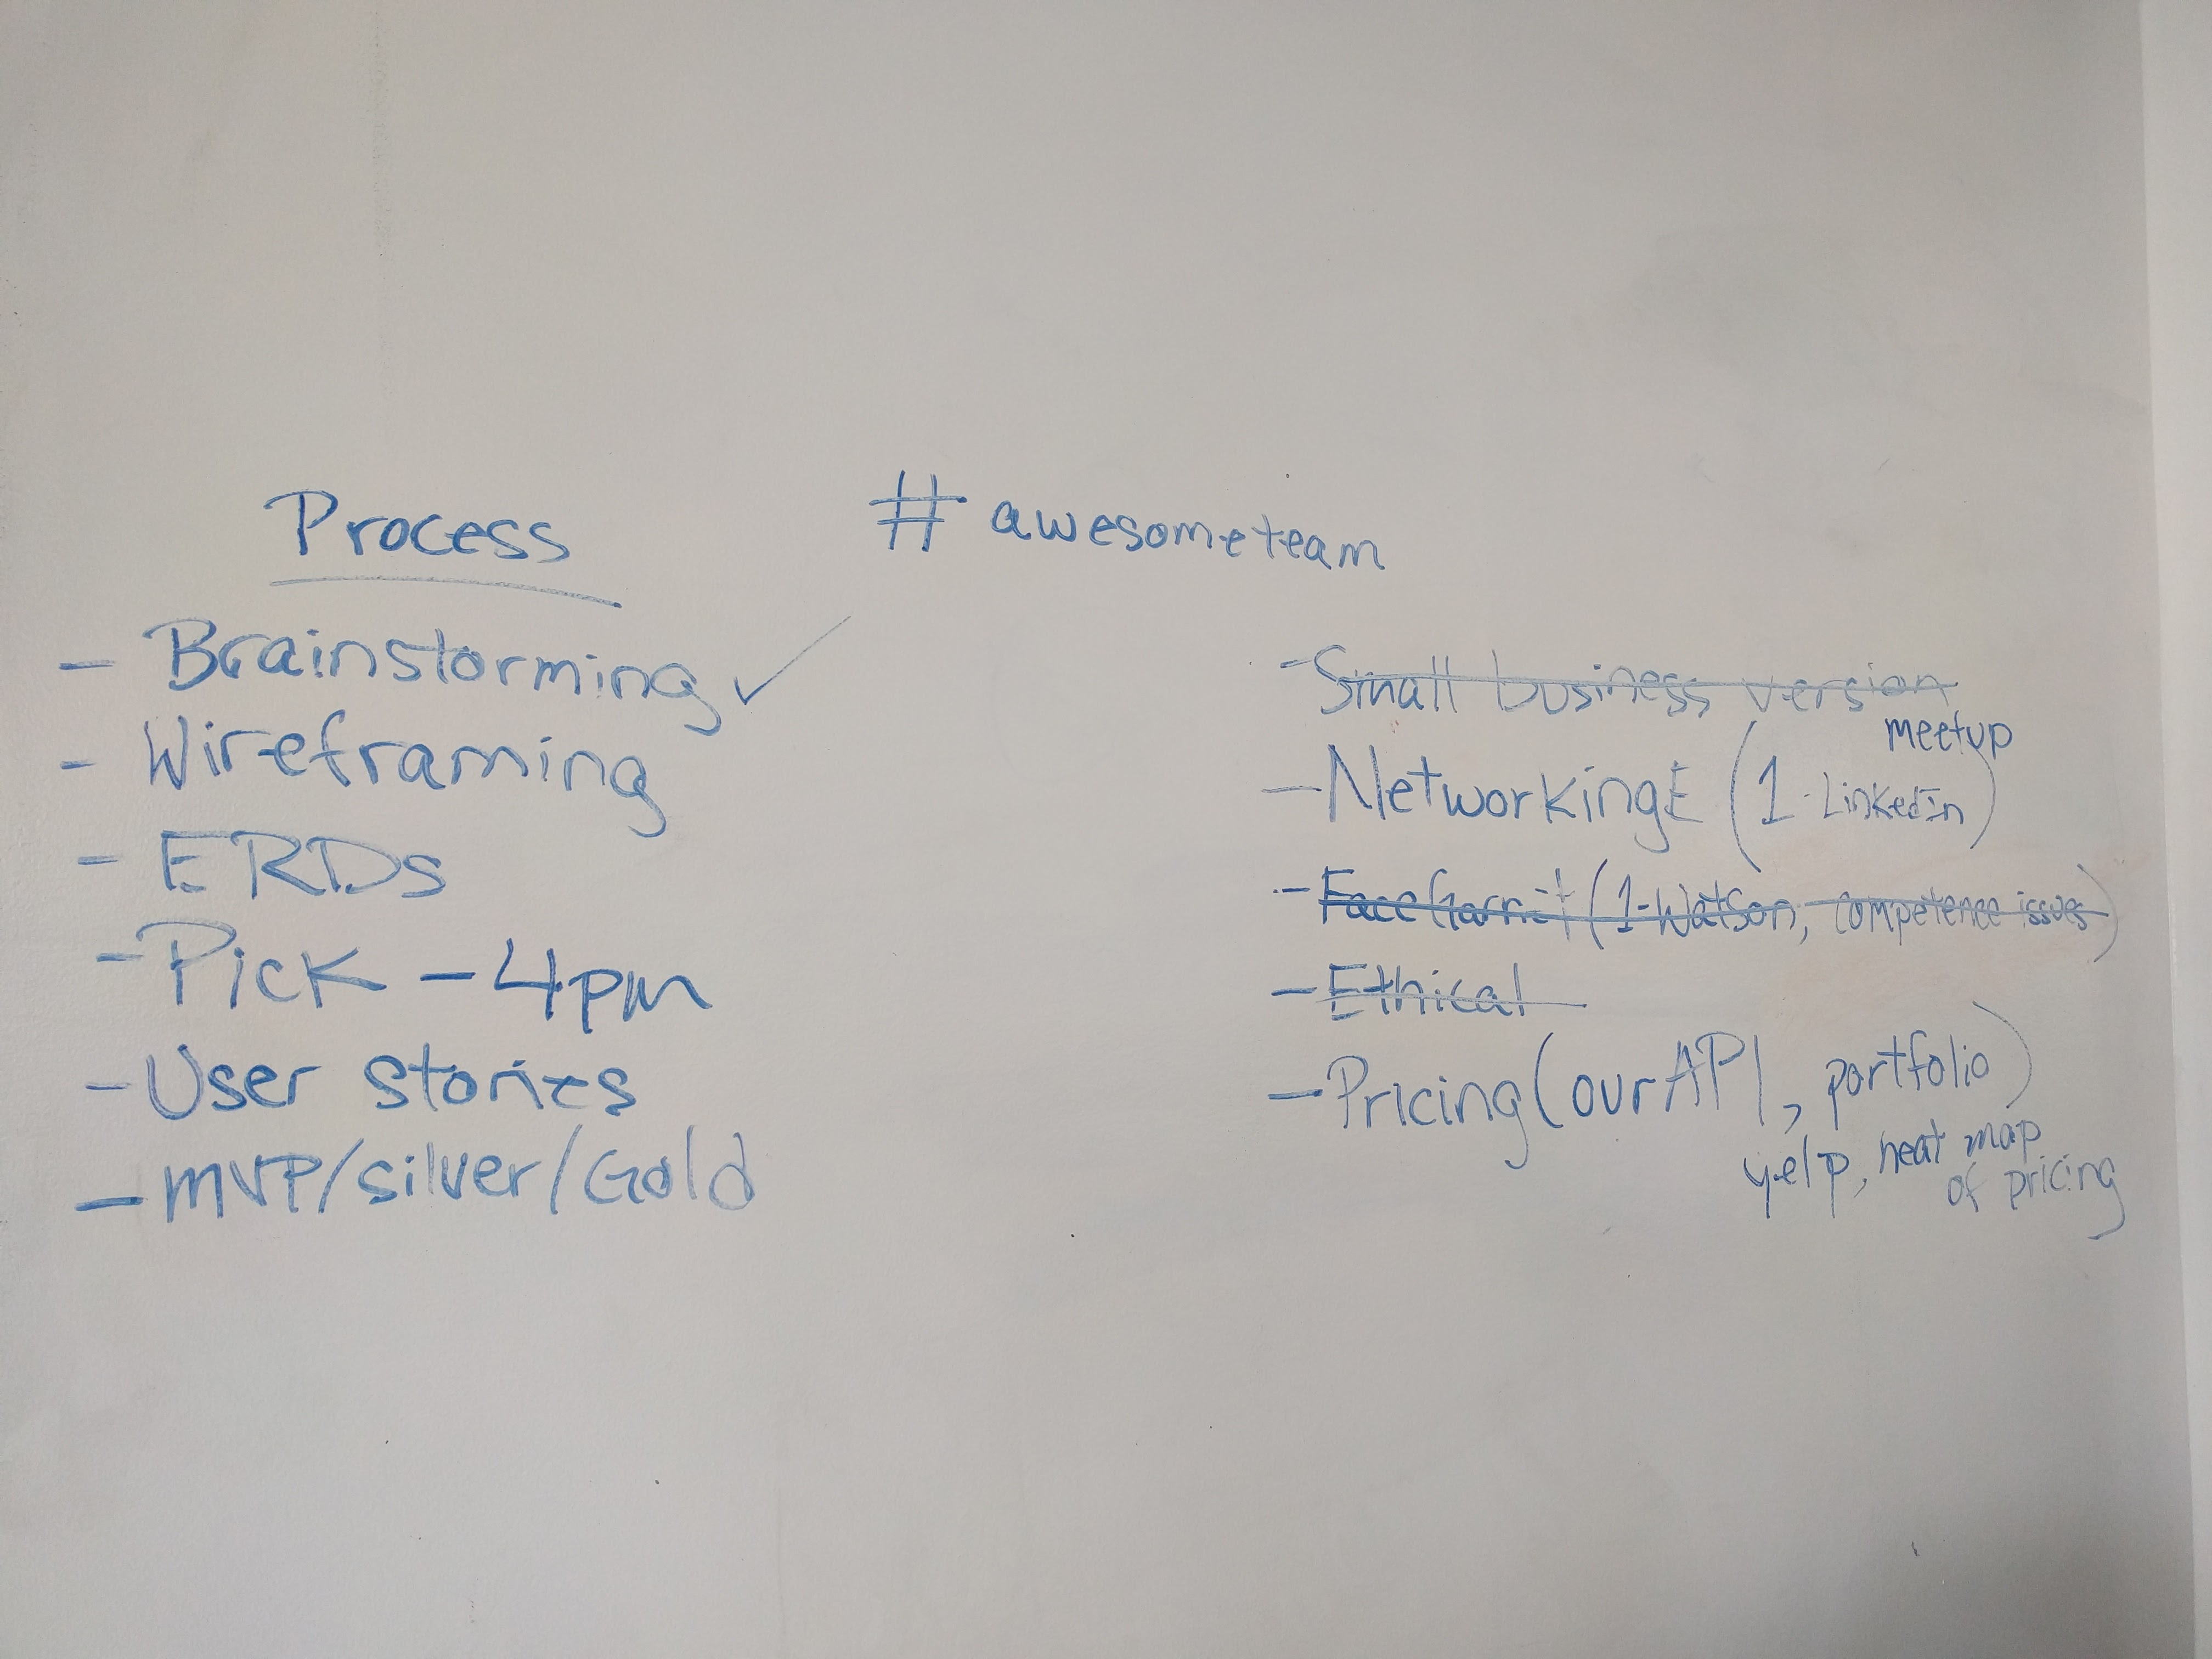 Process
# awesometeam
- Brainstorming ✓
- Wireframing
- ERDs
- Pick - 4pm
- User stories
- MVP/silver/Gold
- Small business version
meetup
- NetworkingE (1-LinkedIn)
- Face (1-Watson, competence issues)
- Ethical
- Pricing (our API, portfolio)
yelp, heat map
of pricing